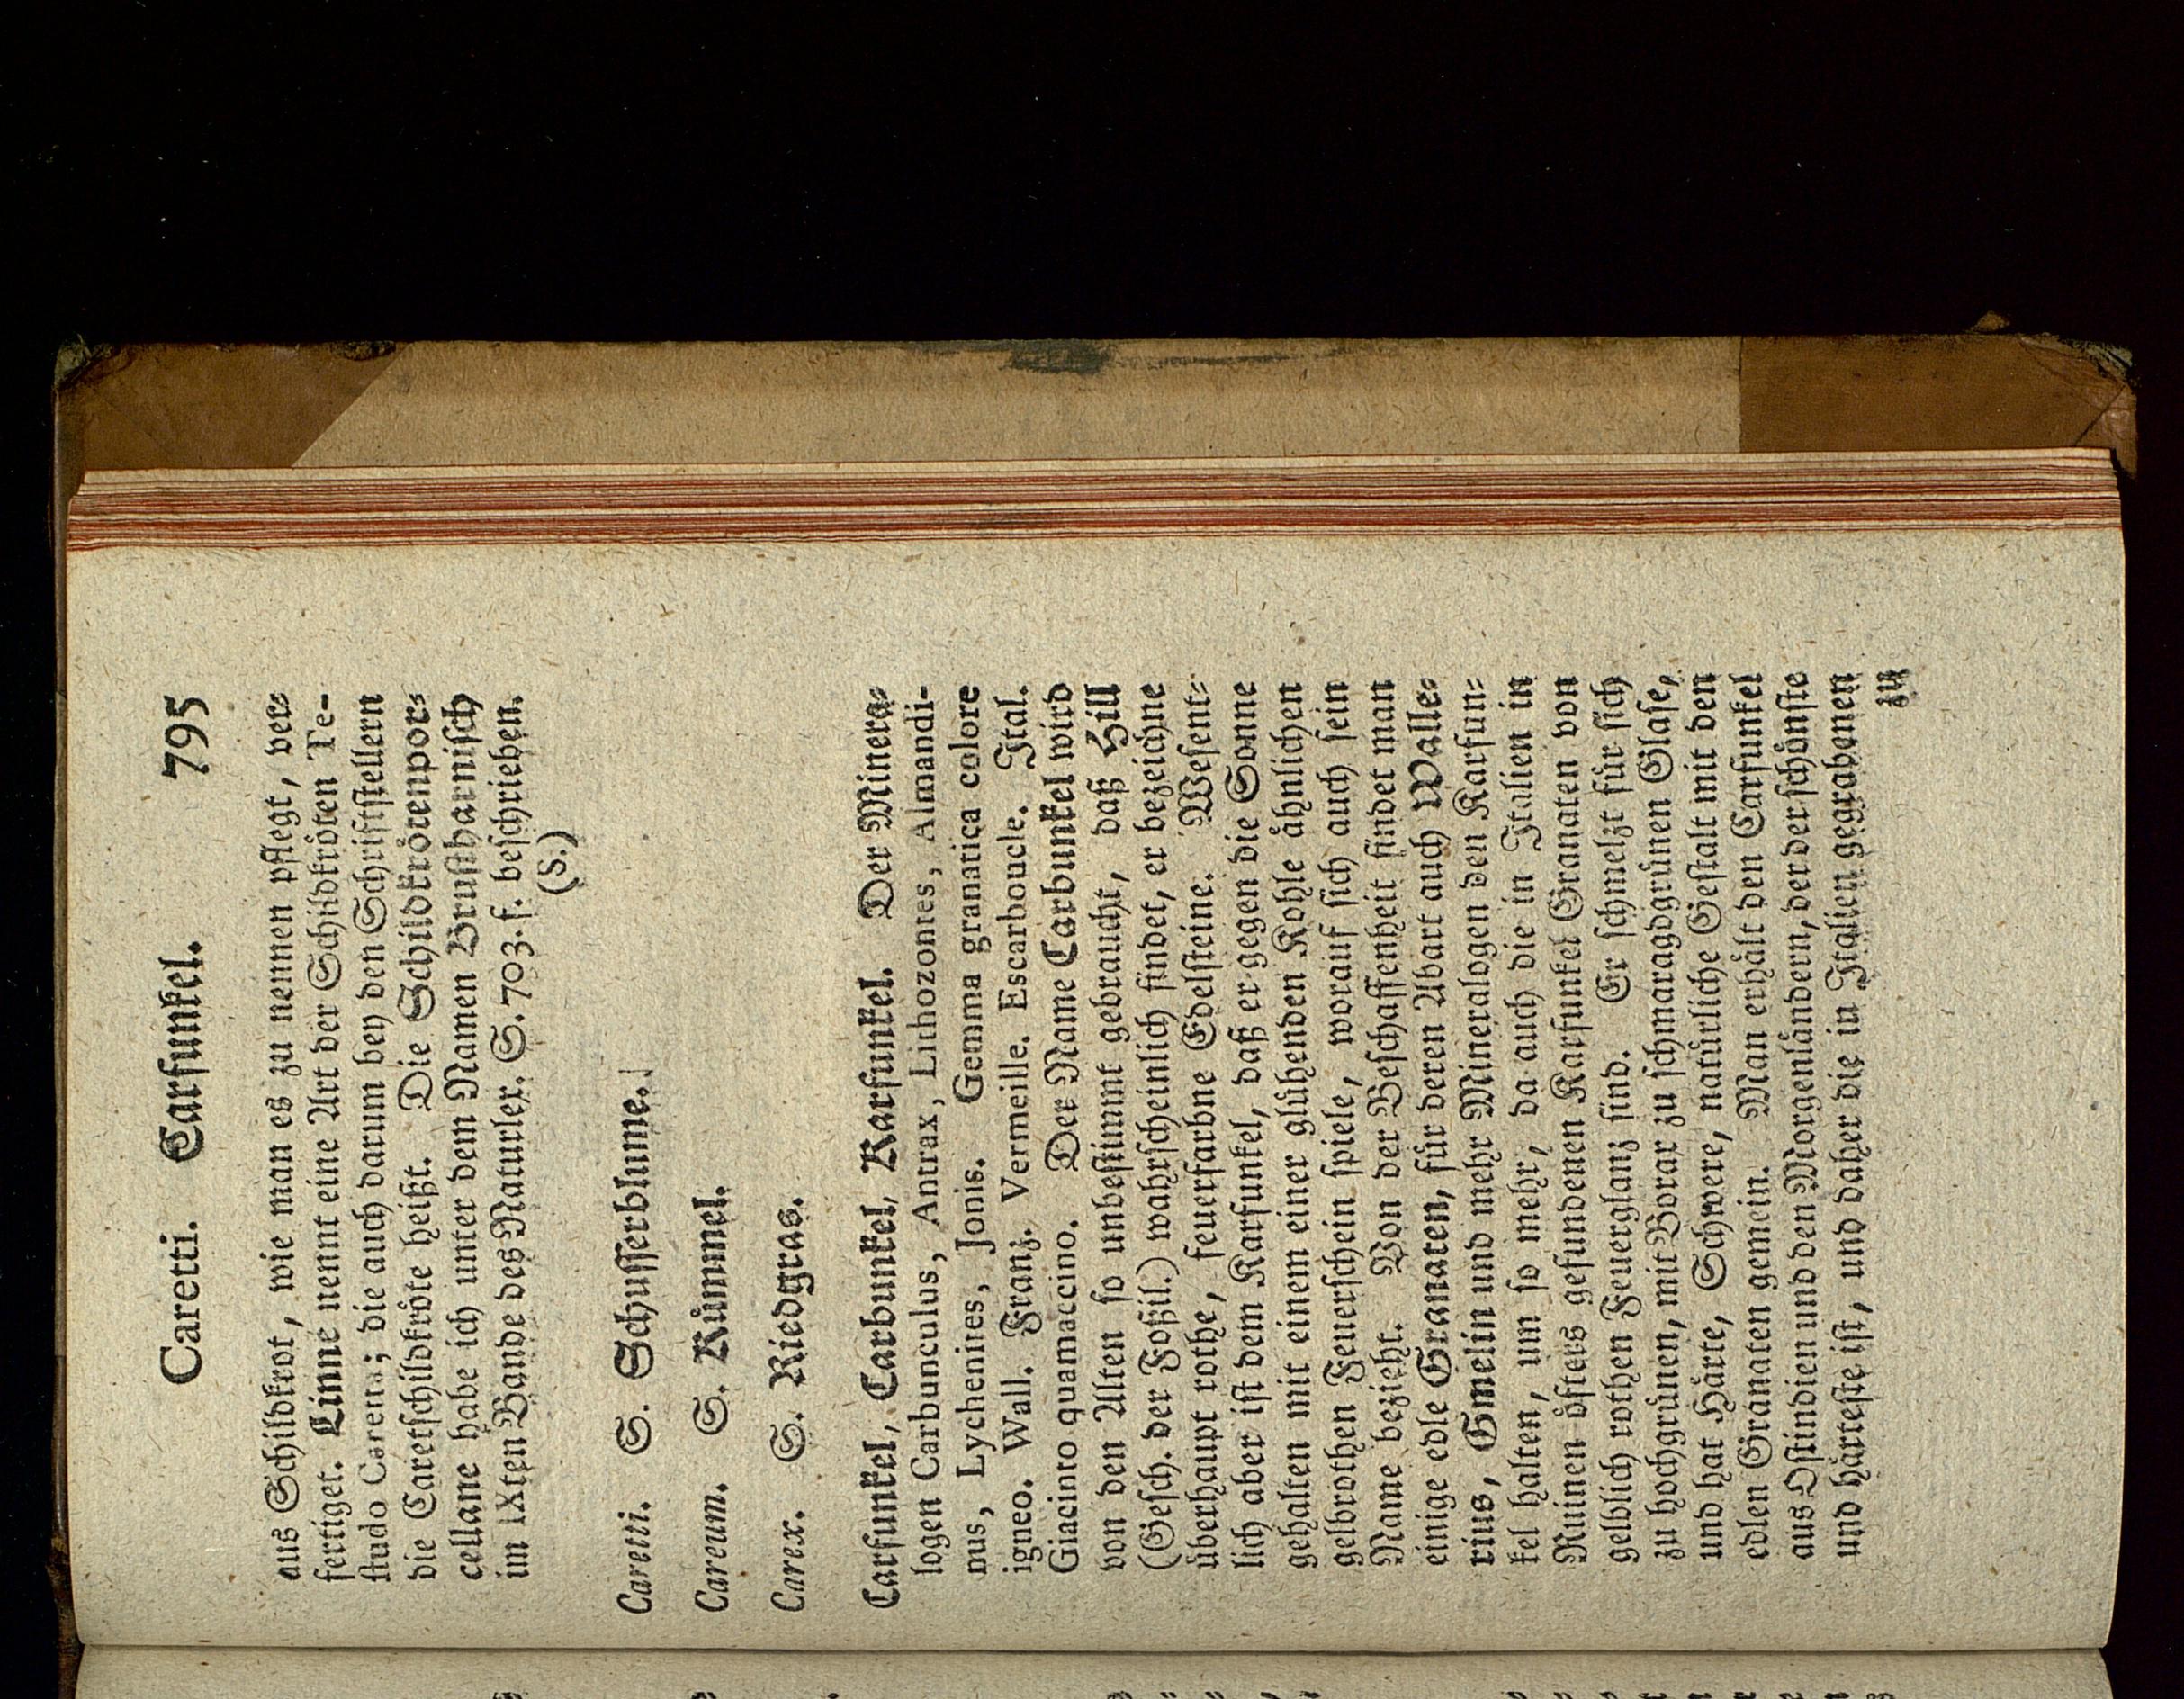 Caretti. Carfunkel. 795
aus Schildkrot, wie man es zu nennen pflegt, ver=
fertiget. Linne nennt eine Art der Schildkröten Te-
ſtudo Caretta; die auch darum bey den Schriftſtellern
die Caretſchildkröte heißt. Die Schildkrötenpor=
cellane habe ich unter dem Namen Bruſtharniſch
im IXten Bande des Naturlex. S. 703. f. beſchrieben.
(S.)
Caretti. S. Schuſſerblume.
Careum. S. Kümmel.
Carex. S. Riedgras.
Carfunkel, Carbunkel, Karfunkel. Der Minera=
logen Carbunculus, Antrax, Lithozontes, Almandi-
nus, Lychenites, Jonis. Gemma granatica colore
igneo. Wall. Franz. Vermeille. Escarboucle. Ital.
Giacinto quamaccino. Der Name Carbunkel wird
von den Alten ſo unbeſtimmt gebraucht, daß Hill
(Geſch. der Foßil.) wahrſcheinlich findet, er bezeichne
überhaupt rothe, feuerfarbne Edelſteine. Weſent=
lich aber iſt dem Karfunkel, daß er gegen die Sonne
gehalten mit einem einer glühenden Kohle ähnlichen
gelbrothen Feuerſchein ſpiele, worauf ſich auch ſein
Name bezieht. Von der Beſchaffenheit findet man
einige edle Granaten, für deren Abart auch Walle=
rius, Gmelin und mehr Mineralogen den Karfun=
kel halten, um ſo mehr, da auch die in Italien in
Ruinen öfters gefundenen Karfunkel Granaten von
gelblich rothen Feuerglanz ſind. Er ſchmelzt für ſich
zu hochgrünen, mit Borax zu ſchmaragdgrünen Glaſe,
und hat Härte, Schwere, natürliche Geſtalt mit den
edlen Granaten gemein. Man erhält den Carfunkel
aus Oſtindien und den Morgenländern, der der ſchönſte
und härteſte iſt, und daher die in Italien gegrabenen
zu